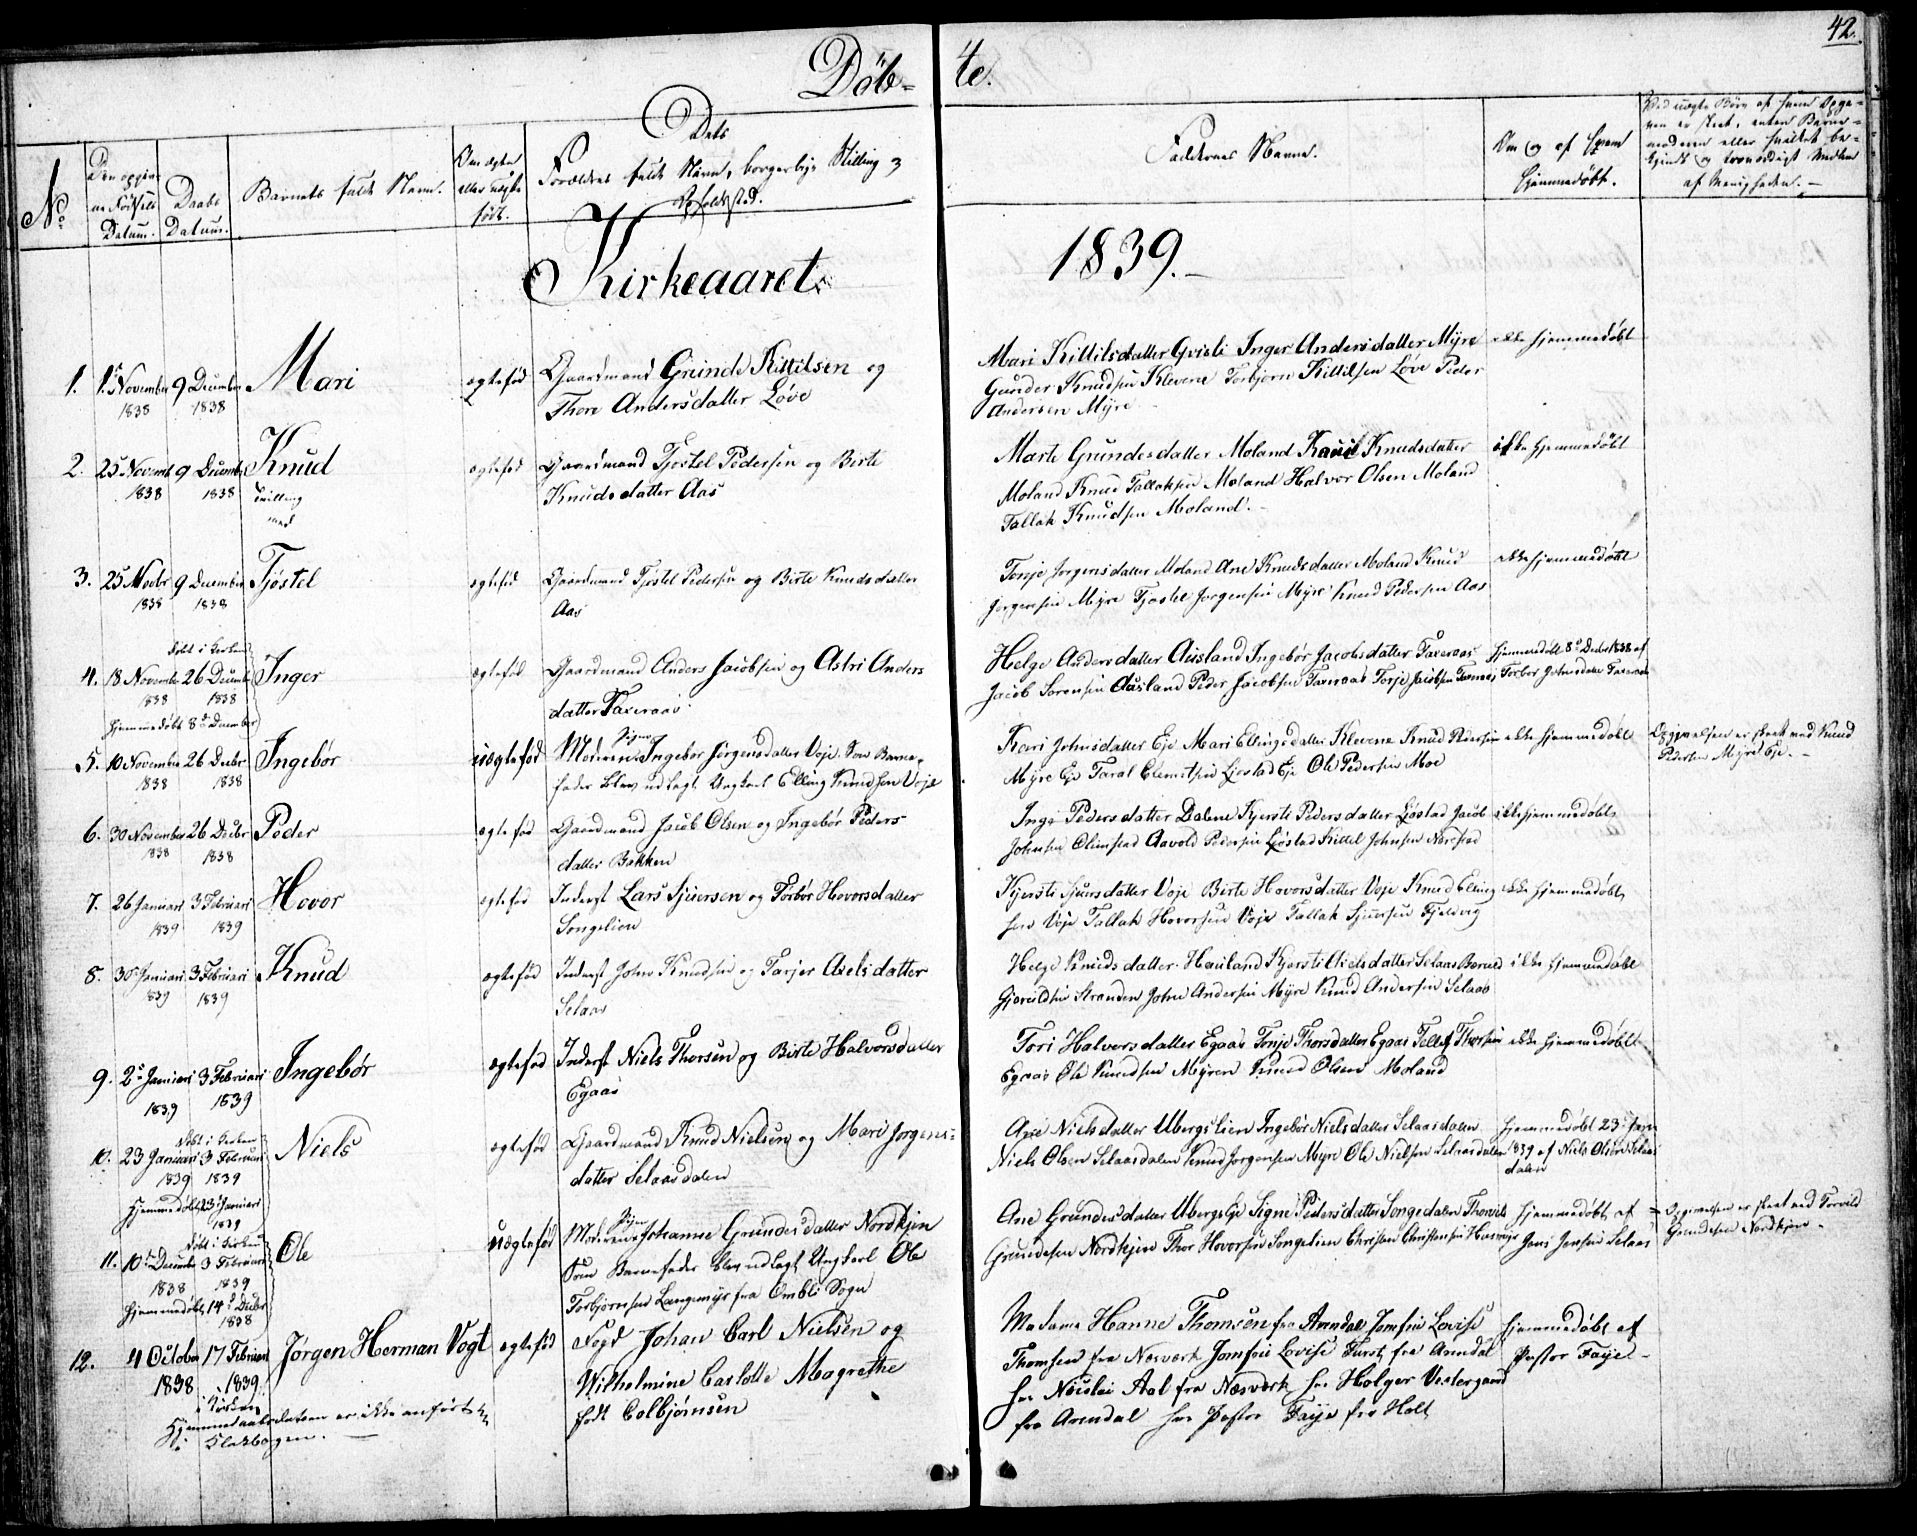 Døb-
te.
42.
No
Den opgivne Fødsels Datum.
Daabs Datum.
Barnets fulde Navn.
Om ægte eller uægte født.
Dets
Forældres fulde Navn, borgerlige Stilling og
Opholdssted.
Faddernes Navne.
Om og af hvem
hjemmedøbt.
Ved uægte Børn af hvem Opgaven er skeet, enten Barnemoderen eller hvilket bekjendt og troværdigt Medlem af Menigheden.
Kirkeaaret
1839.
1. 1ste November 1838
9 December 1838
Mari
ægtefød
Gaardmand Grunde Kittilsen og
Thore Andersdatter Løve
Mari Kittilsdatter Qvisli Inger Andersdatter Myre
Gunder Knudsen Klevene Torbjørn Kittilsen Løve Peder
Andersen Myre
ikke hjemmedøbt
2. 25 Novemb 1838
9 Decemb 1838
Knud
Tvilling
med
ægtefød
Gaardmand Tjøstel Pedersen og Birte
Knudsdatter Aas
Marte Grundesdatter Moland Knudsdatter
Moland Knud Tallaksen Moland Halvor Olsen Moland
Tallak Knudsen Moland.
ikke hjemmedøbt
3. 25 Novbr 1838
9 December 1838
Tjøstel
ægtefød
Gaardmand Tjøstel Pedersen og Birte Knudsdatter
Aas
Tonje Jørgensdatter Moland Ane Knudsdatter Moland Knud
Jørgensen Myre Tjøstel Jørgensen Myre Knud Pedersen Aas
ikke hjemmedøbt
4. 18 November 1838
døbt i Kirken
26 Decemb 1838
hjemmedøbt 8de December
Inger
ægtefød
Gaardmand Anders Jacobsen og Astri Anders
datter Faxeraas
Helge Andersdatter Ausland Ingebør Jacobsdatter Faxeraas
Jacob Sørensen Aasland Peder Jacobsen Faxeraas Torje Jacobsen Faxeraas
hjemmedøbt 8de Decbr 1838 af
Torbor Johnsdatter Faxeraas
5. 10 November 1838
26 Decbr 1838
Ingebør
uægtefød
Moderens Pigen Ingebør Jørgensdatter Voje. Som Barne-
fader blev udlagt Ungkarl Elling Knudsen Voje
Kari Johnsdatter Eje Mari Ellingsdatter Klevene Knud Pedersen
Myre Eje Taral Clemetsen Ljøstad Eje Ole Pedersen Moe
ikke hjemmedøbt
Opgivelsen er skeet ved Knud
Pedersen Myre Eje.
6. 30 November 1838
26 Decbr 1838
Peder
ægtefød
Gaardmand Jacob Olsen og Ingebør Peders-
datter Bakken
Inge Pedersdatter Dalene Kjersti Pedersdatter Ljøstad Jacob
Johnsen Olimstad Aavold Pedersen Ljøstad Kittel Johnsen Nærestad
ikke hjemmedøbt
7. 26 Januari 1839
3 Februari 1839
Hovor
ægtefød
Inderst Lars Sjursen og Torbør Hovorsdatter
Songelien
Kjersti Sjursdatter Voje Birte Hovorsdatter Voje Knud Elling
sen Voje Tallak Hovorsen Voje Tallak Sjursen Fjeldvig
ikke hjemmedøbt
8. 30 Januari 1839
3 Februari 1839
Knud
ægtefød
Inderst John Knudsen og Tarjer Axelsdatter
Selaas
Helge Knudsdatter Hauland Kjersti Selaas
Stranden John Andersen Myre Knud Andersen Selaas
ikke hjemmedøbt
9. 2den Januari 1839
3 Februari 1839
Ingebør
ægtefød
Inderst Niels Thorsen og Birte Halvorsdatter
Egaas
Tori Halvorsdatter Egaas Tonje Thorsdatter Egaas Tellef Thorsen
Egaas Ole Knudsen Myren Knud Olsen Moland
ikke hjemmedøbt
10. 23 Januari 1839
døbt i Kirken
3 Februari 1839
hjemmedøbt 23de Januari 1839
Niels
ægtefød
Gaardmand Knud Nielsen og Mari Jørgens-
datter Selaasdalen
Ane Nielsdatter Ubergslien Ingebør Nielsdatter Selaasdalen
Niels Olsen Selaasdalen Knud Jørgensen Myre Ole Nielsen Selaasdalen
hjemmedøbt 23de Janr
1839 af Niels Olsen Selaas
dalen
11. 10de December 1838
døbt i Kirken
3 Februari 1839
hjemmedøbt 14de Decbr 1838
Ole
uægtefød
Moderens Pigen Johanne Grundesdatter Nordkjen
Som Barnefader blev udlagt Ungkarl Ole
Torbjørnsen Langemyr fra Ombli Sogn
Ane Grundesdatter Ubergs Eje Signe Pedersdatter Songedalen Thorvild
Grundesen Nordkjen Thor Hovorsen Songelien Christen Christensen
hjemmedøbt af
Jens Jensen Selaas
Opgivelsen er skeet ved Torvild
Grundesen Nordkjen.
12. 4 October 1838
17 Februari 1839
i Kirken
Jørgen Herman Vogt
ægtefød
Fogd Johan Carl Nielsen og
Wilhelmine Carlotte Magrethe
født Colbjørnsen
Madame Hanne Thomsen fra Arendal Jomfru Lovise
Thomsen fra Næsværk Jomfru Lovise Furst fra Arendal
hr Nicolai Aal fra Næsværk hr Holger Vestergaard
fra Arendal hr Pastor Faye fra Holt
hjemmedøbt af
Pastor Faye
Hjemmedaabsdatoen er ikke anført
i Klokbogen.